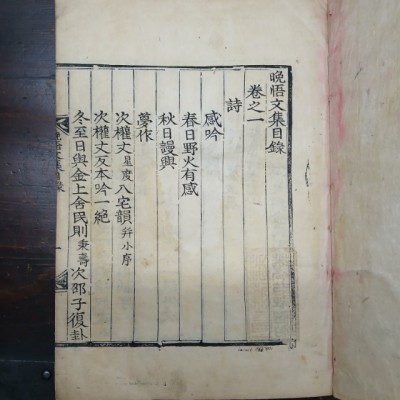 晚悟文集目錄
卷之一
詩
感吟
春日野火有感
秋日謾興
夢作
次權丈星度八宅韻并小序
次權丈友本吟一絶
冬至日與金上舍民則秉壽次邵子復卦